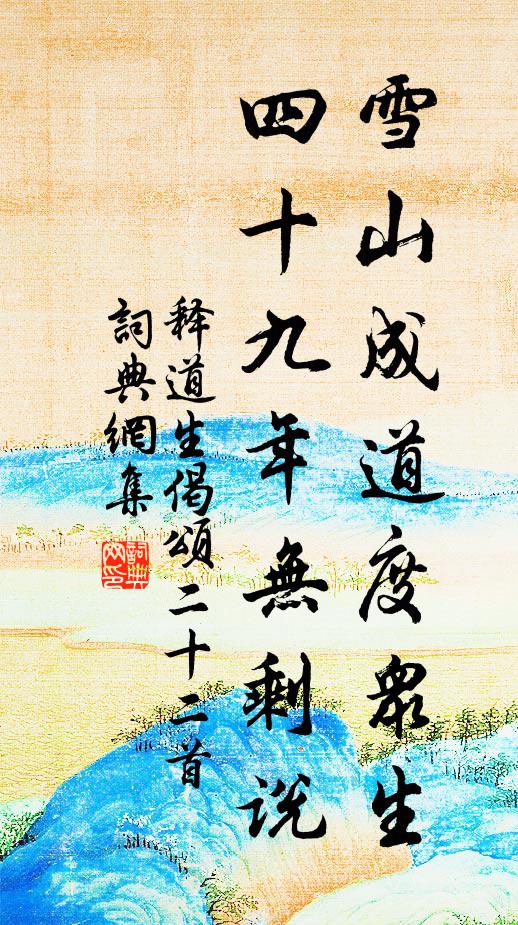 雪山成道度眾生
四十九年無剩说
释道生偈頌二十二首
詞典網集
詞典網印